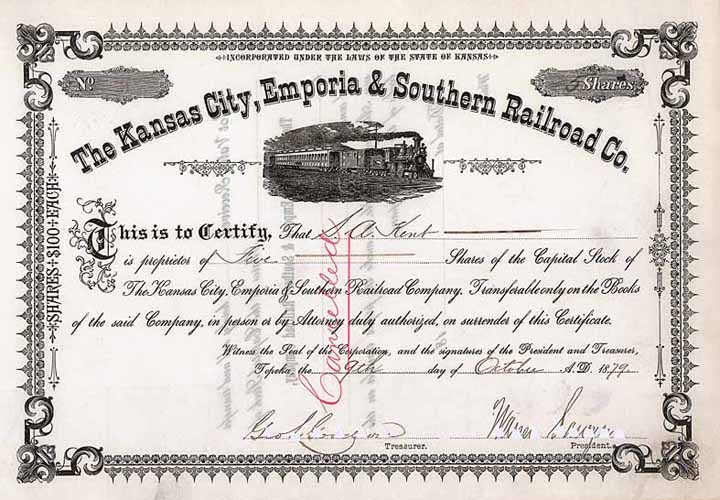 INCORPORATED UNDER THE LAWS OF THE STATE OF KANSAS
No
5 Shares
The Kansas City, Emporia & Southern Railroad Co.
SHARES $100 EACH
This is to Certify, That S. A. Kent
is proprietor of Five Shares of the Capital Stock of
The Kansas City, Emporia & Southern Railroad Company. Transferable only on the Books
of the said Company, in person or by Attorney duly authorized, on surrender of this Certificate.
Witness the Seal of the Corporation, and the signatures of the President and Treasurer,
Topeka, the 9th day of October A.D. 1879.
Cancelled
Treasurer.
President.